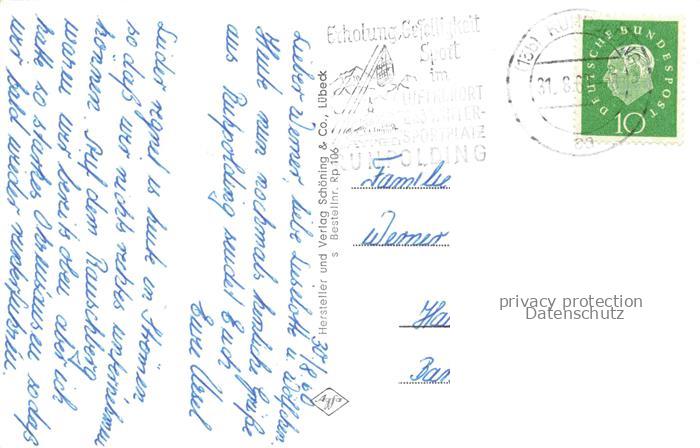 30/8.60
Lieber Werner, liebe Liselotte u. Wilhelm.
Heute nun nochmals herzliche Grüße
aus Ruhpolding sendet Euch
Eure Ursel
Leider regnet es heute in Strömen
so daß wir nichts rechtes unternehmen
können. Auf dem Rauschberg
waren wir bereits oben aber ich
hatte so starkes Ohrensausen so daß
wir bald wieder
Hersteller und Verlag Schöning & Co., Lübeck
s Bestellnr. Rp 106
Agfa
Erholung, Geselligkeit
Sport
im
LUFTKURORT
SPORTPLATZ
RUHPOLDING
31. 8. 6
DEUTSCHE BUNDESPOST
10
Familie
Werner
Ha
Bar
privacy protection
Datenschutz